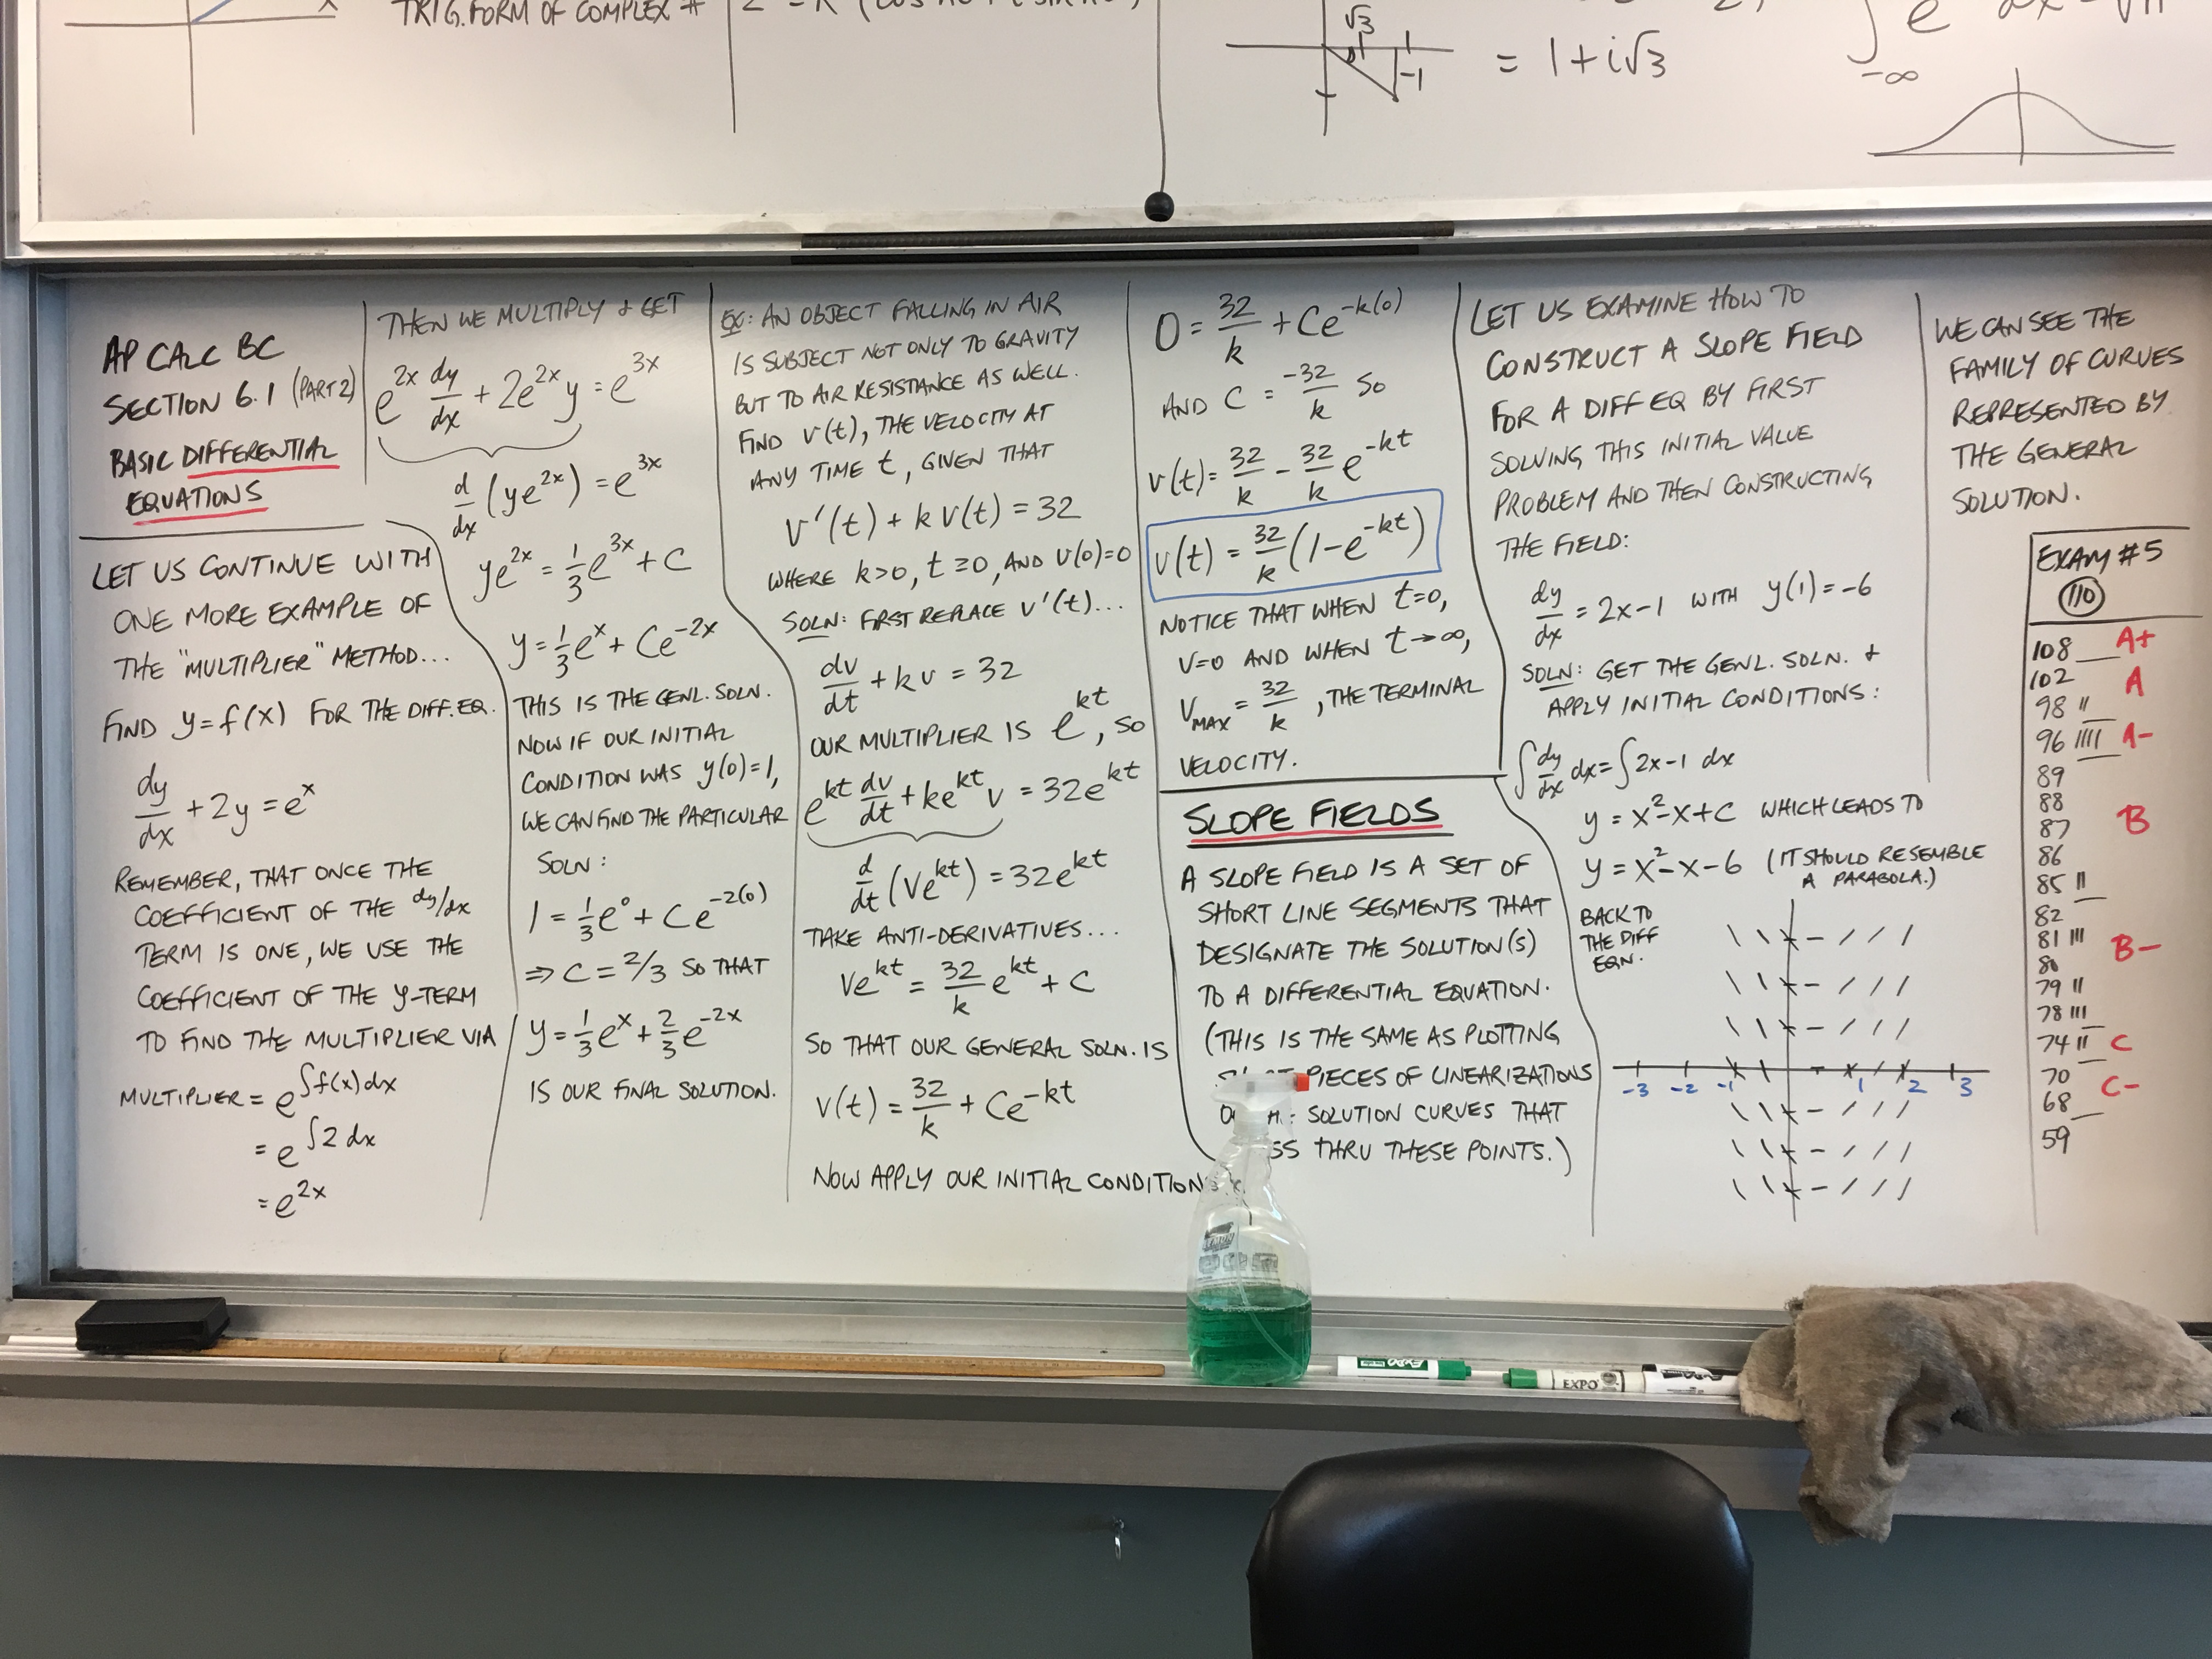 TRIG. FORM OF COMPLEX #
√3
1
-1
= 1+i√3
-∞
AP CALC BC
SECTION 6.1 (PART 2)
BASIC DIFFERENTIAL
EQUATIONS
LET US CONTINUE WITH
ONE MORE EXAMPLE OF
THE "MULTIPLIER" METHOD...
FIND y=f(x) FOR THE DIFF. EQ.
dy/dx + 2y = e^x
REMEMBER, THAT ONCE THE
COEFFICIENT OF THE dy/dx
TERM IS ONE, WE USE THE
COEFFICIENT OF THE y-TERM
TO FIND THE MULTIPLIER VIA
MULTIPLIER = e^∫f(x)dx
= e^∫2 dx
= e^2x
THEN WE MULTIPLY & GET
e^2x dy/dx + 2e^2x y = e^3x
d/dx (ye^2x) = e^3x
ye^2x = 1/3 e^3x + C
y = 1/3 e^x + Ce^-2x
THIS IS THE GENL. SOLN.
NOW IF OUR INITIAL
CONDITION WAS y(0)=1,
WE CAN FIND THE PARTICULAR
SOLN:
1 = 1/3 e^0 + Ce^-2(0)
⇒ C = 2/3 SO THAT
y = 1/3 e^x + 2/3 e^-2x
IS OUR FINAL SOLUTION.
EX: AN OBJECT FALLING IN AIR
IS SUBJECT NOT ONLY TO GRAVITY
BUT TO AIR RESISTANCE AS WELL.
FIND v(t), THE VELOCITY AT
ANY TIME t, GIVEN THAT
v'(t) + k v(t) = 32
WHERE k>0, t≥0, AND v(0)=0
SOLN: FIRST REPLACE v'(t)...
dv/dt + kv = 32
OUR MULTIPLIER IS e^kt, SO
e^kt dv/dt + ke^kt v = 32e^kt
d/dt (Ve^kt) = 32e^kt
TAKE ANTI-DERIVATIVES...
Ve^kt = 32/k e^kt + C
SO THAT OUR GENERAL SOLN. IS
v(t) = 32/k + Ce^-kt
NOW APPLY OUR INITIAL CONDITION
0 = 32/k + Ce^-k(0)
AND C = -32/k SO
v(t) = 32/k - 32/k e^-kt
v(t) = 32/k (1-e^-kt)
NOTICE THAT WHEN t=0,
V=0 AND WHEN t→∞,
V MAX = 32/k, THE TERMINAL
VELOCITY.
SLOPE FIELDS
A SLOPE FIELD IS A SET OF
SHORT LINE SEGMENTS THAT
DESIGNATE THE SOLUTION(S)
TO A DIFFERENTIAL EQUATION.
(THIS IS THE SAME AS PLOTTING
PIECES OF LINEARIZATIONS
SOLUTION CURVES THAT
THRU THESE POINTS.)
LET US EXAMINE HOW TO
CONSTRUCT A SLOPE FIELD
FOR A DIFF EQ BY FIRST
SOLVING THIS INITIAL VALUE
PROBLEM AND THEN CONSTRUCTING
THE FIELD:
dy/dx = 2x-1 WITH y(1) = -6
SOLN: GET THE GENL. SOLN. &
APPLY INITIAL CONDITIONS:
∫ dy/dx dx = ∫ 2x-1 dx
y = x^2-x+C WHICH LEADS TO
y = x^2-x-6 (IT SHOULD RESEMBLE
A PARABOLA.)
BACK TO
THE DIFF
EQN.
-3 -2 -1 1 2 3
WE CAN SEE THE
FAMILY OF CURVES
REPRESENTED BY
THE GENERAL
SOLUTION.
EXAM #5
110
108 A+
102
98 || A
96 |||| A-
89
88
87 B
86
85 ||
82
81 ||| B-
80
79 ||
78 |||
74 || C
70
68 C-
59
EXPO
EXPO